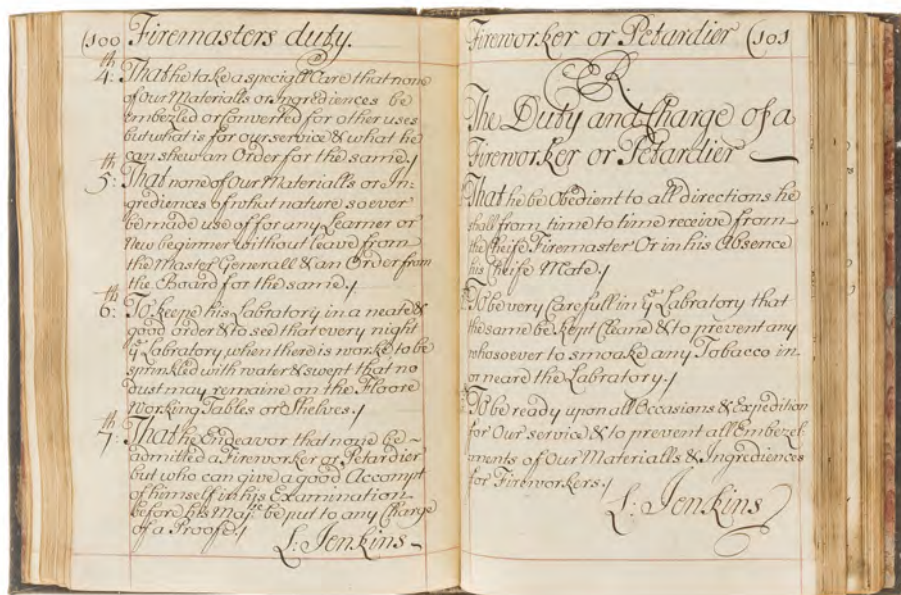 (100 Firemasters duty.
4:th That he take a speciall Care that none
of Our Materialls or Ingrediences be
Embezled or Converted for other uses
but what is for our service & what he
can shew an Order for the same./
5:th That none of Our Materialls or In-
grediences of what nature soever
be made use of for any Learner or
New beginner without leave from
the Master Generall & an Order from
the Board for the same./
6:th To keepe his Labratory in a neate &
good order & to see that every night
ye Labratory when there is worke to be
sprinkled with water & swept that no
dust may remaine on the Floore
Working Tables or Shelves./
7:th That he Endeavor that none be
admitted a Fireworker or Petardier
but who can give a good Accompt
of himself in his Examination
before his Majtie be put to any Charge
of a Proofe./
L: Jenkins
Fireworker or Petardier (101
CR.
The Duty and Charge of a
Fireworker or Petardier
That he be Obedient to all directions he
shall from time to time receive from
the Cheife Firemaster Or in his Absence
his Cheife Mate./
To be very Carefull in ye Labratory that
the same be kept Cleane & to prevent any
whosoever to smoake any Tobacco in
or neare the Labratory./
To be ready upon all Occasions & Expedition
for Our service & to prevent all Embezel-
ments of Our Materialls & Ingrediences
for Fireworkers./
L: Jenkins